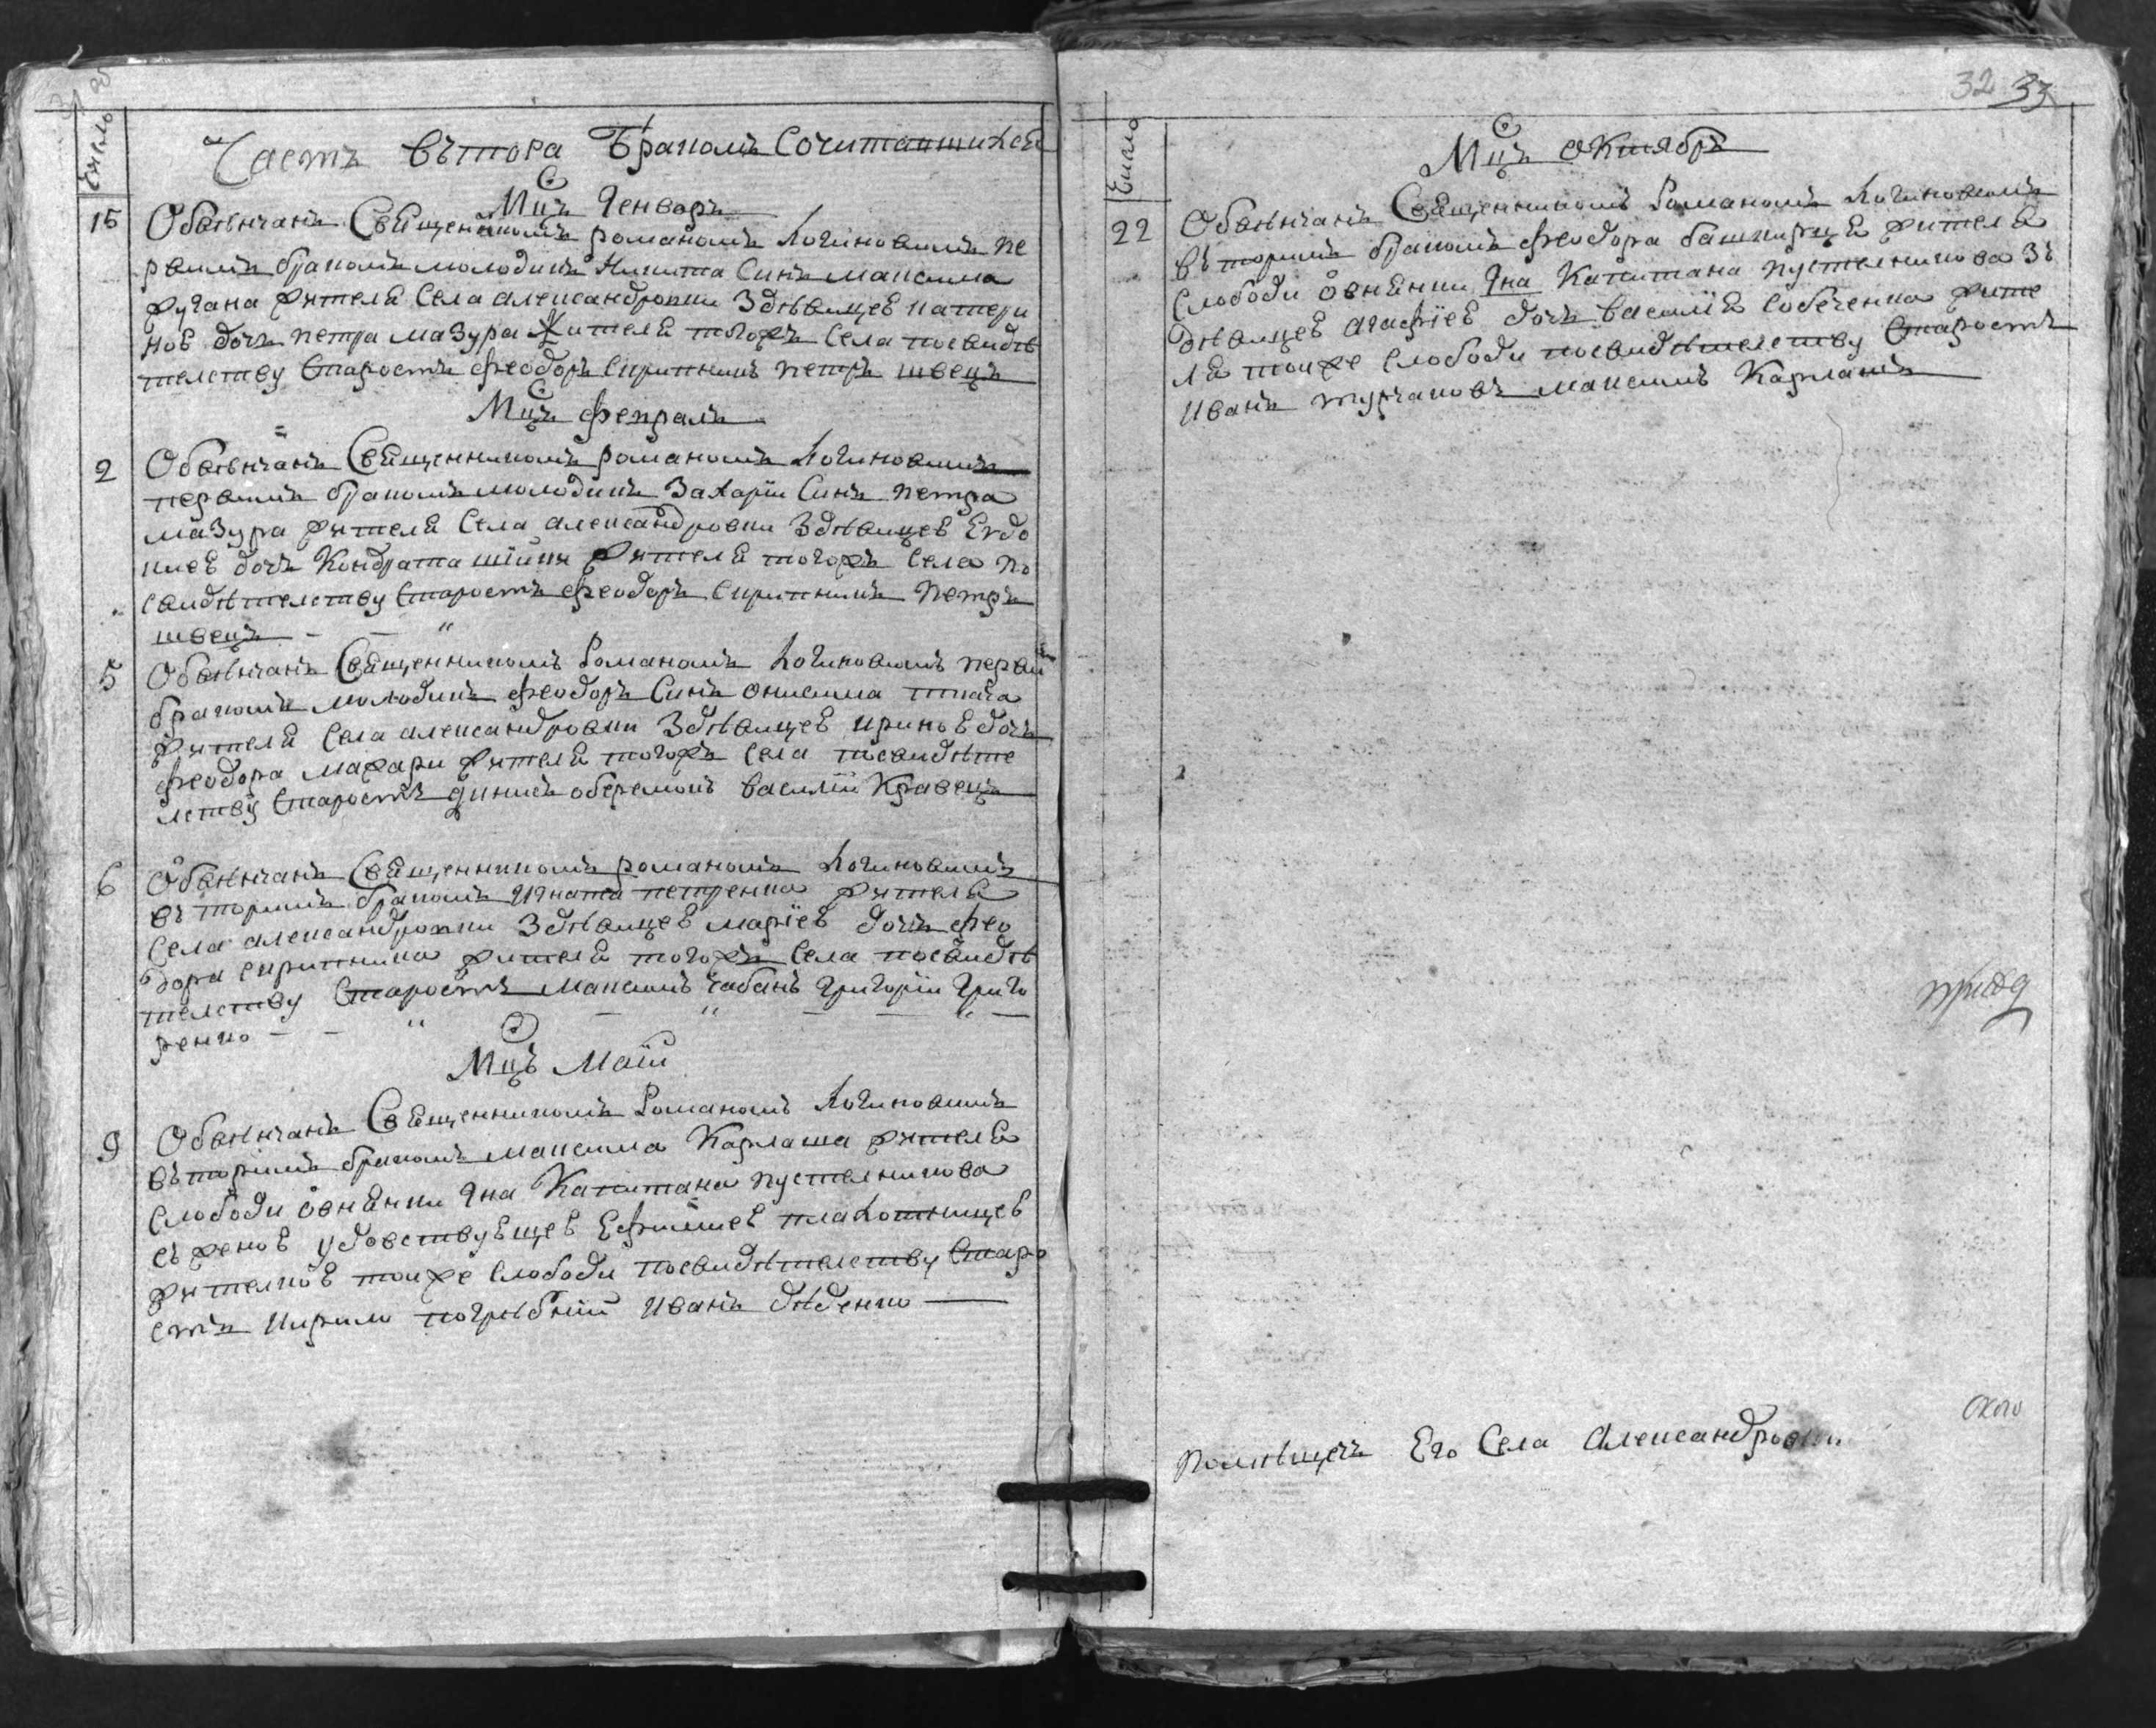 Число
Часть вътора Браколъ Сочитавшихся
Мцъ Генваръ
15 Обвѣнчанъ Свѧщенникомъ романомъ Логиновимъ пе
рвимъ бракомъ молодикъ Никита Синъ максима
жителѧ Села александровки Здѣвицеѣ катери
ноѣ дочъ петра мазура Жителѧ тогожъ Села посвидѣ
телству Старостъ феодоръ Скрипникъ петръ швецъ
Мцъ февралъ
2 Обвѣнчанъ Свѧщенникомъ романомъ Логиновимъ
первимъ бракомъ молодикъ Захарїи Синъ петра
мазура жителѧ Села александровки Здѣвицеѣ Евдо
киеѣ дочъ Кондрата жителѧ тогожъ Села по
свидѣтелству Старостъ феодоръ Скрипникъ петръ
швецъ
5 Обвѣнчанъ Свѧщенникомъ Романомъ Логиновимъ первим
бракомъ молодикъ феодоръ Синъ онисима ткача
жителѧ Села александровки Здѣвицеѣ ириноѣ дочъ
феодора жителѧ тогожъ Села посвидѣте
лству Старостъ василїи Кравецъ
6 Обвѣнчанъ Свѧщенникомъ романомъ Логиновимъ
въторимъ бракомъ Игната петренка жителѧ
Села александровки Здѣвицеѣ марїеѣ дочъ фео
дора скрипника жителѧ тогожъ Села посвидѣ
телству Старостъ максимъ чабанъ Григорїи Григо
ренко
Мцъ Маїи
9 Обвѣнчанъ Свѧщенникомъ Романомъ Логиновимъ
въторїимъ бракомъ максима Карлаша жителѧ
Слободи овнѧнки Гна Капитана пустелникова
съженоѣ удовствуѣщеѣ Ефимиеѣ
жителкоѣ тоиже Слободи посвидѣтелству Старо
стъ Кирило погрѣбнїи Иванъ дѣденко
32 33
Число
Мцъ октябрѧ
22 Обвѣнчанъ Свѧщенникомъ Романомъ Логиновимъ
въторимъ бракомъ феодора жителѧ
Слободи овнѧнки Гна Капитана пустелникова Зъ
дѣвицеѣ агафїеѣ дочъ василїѧ собченка жите
лѧ тоиже Слободи посвидѣтелству Старостъ
Иванъ максимъ Карлашъ
Помѣщекъ Его Села Александровки